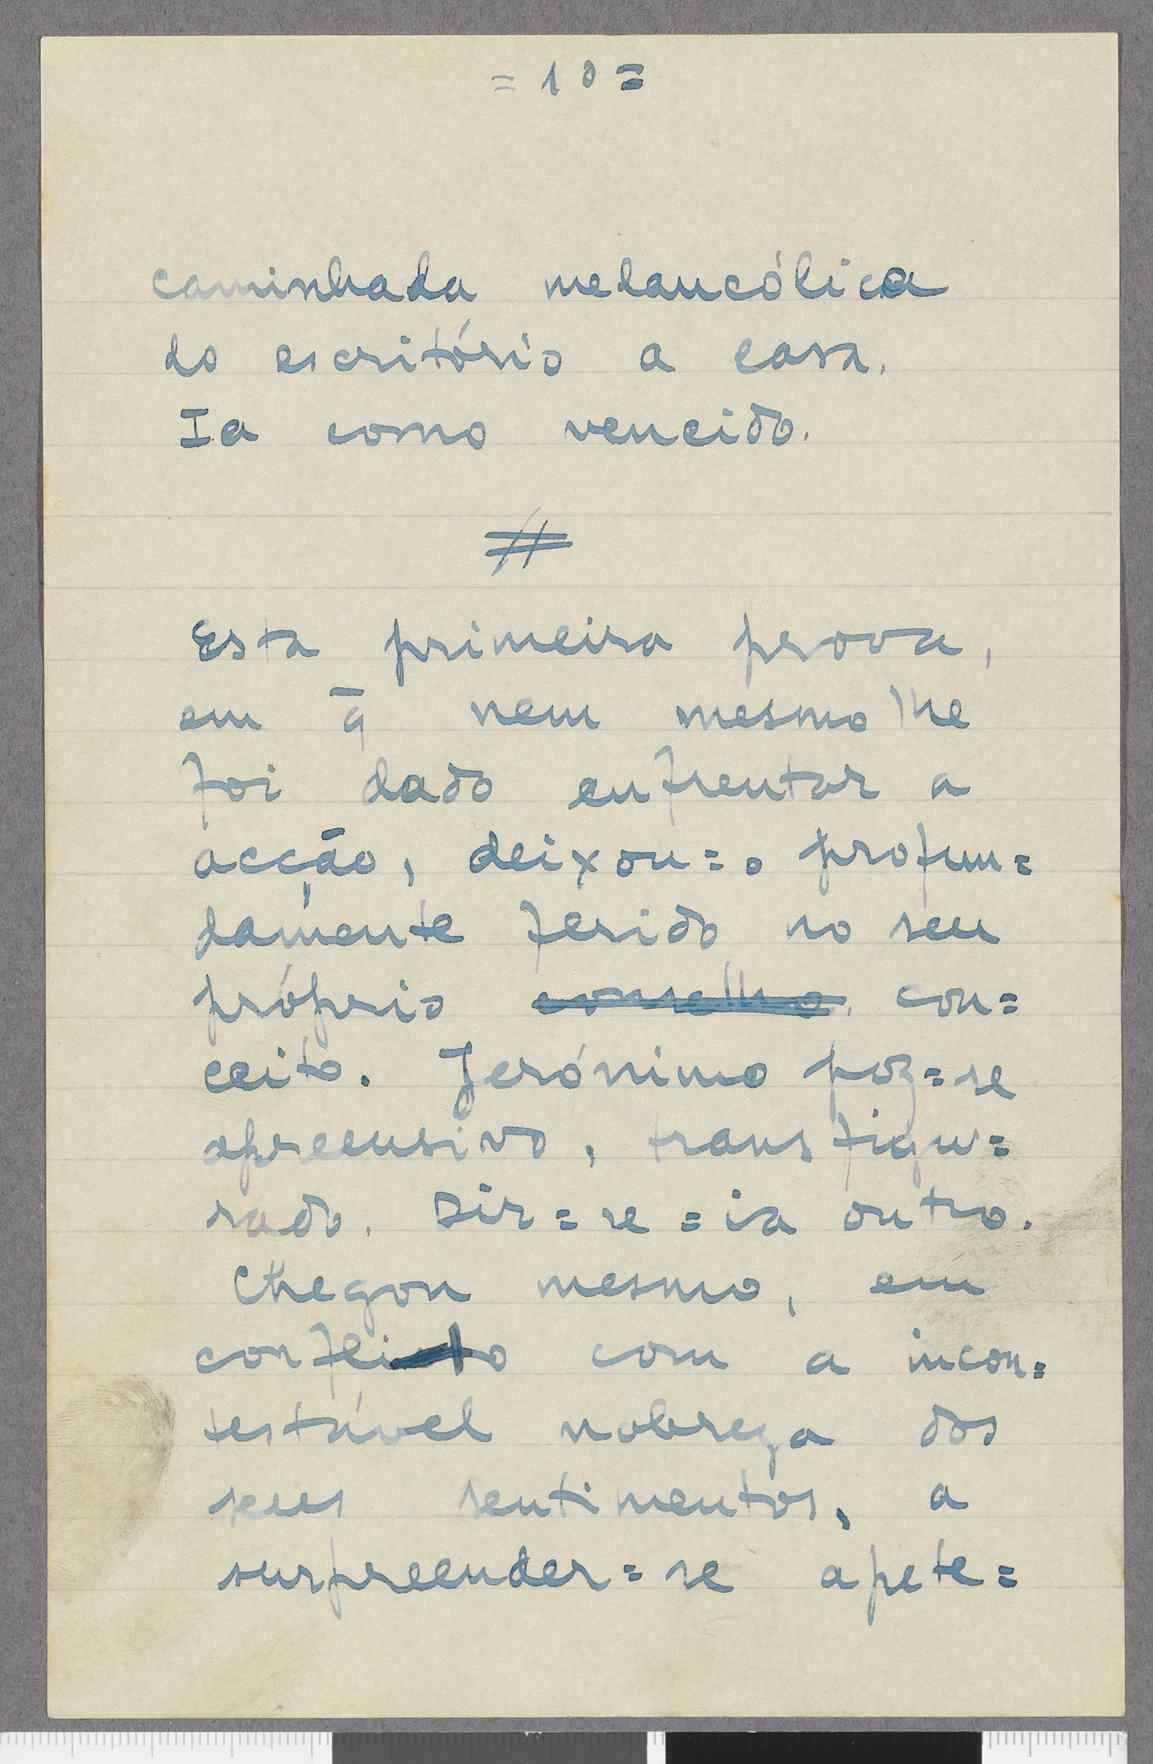 = 10 =
caminhada melancólica
do escritório a casa.
Ia como vencido.
#
Esta primeira prova,
em q̄ nem mesmo lhe
foi dado enfrentar a
acção, deixou=o profun=
damente ferido no seu
próprio conselho con=
ceito. Jerónimo poz=se
apreensivo, transfigu=
rado. Dir=se=ia outro.
Chegou mesmo, em
conflito com a incon=
testável nobreza dos
seus sentimentos, a
surpreender=se apete=